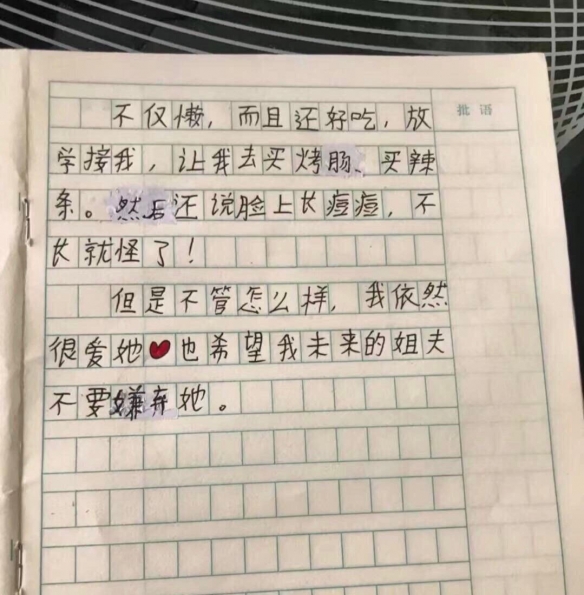 批语
不仅懒，而且还好吃，放
学接我，让我去买烤肠、买辣
条。然后还说脸上长痘痘，不
长就怪了！
但是不管怎么样，我依然
很爱她❤也希望我未来的姐夫
不要嫌弃她。